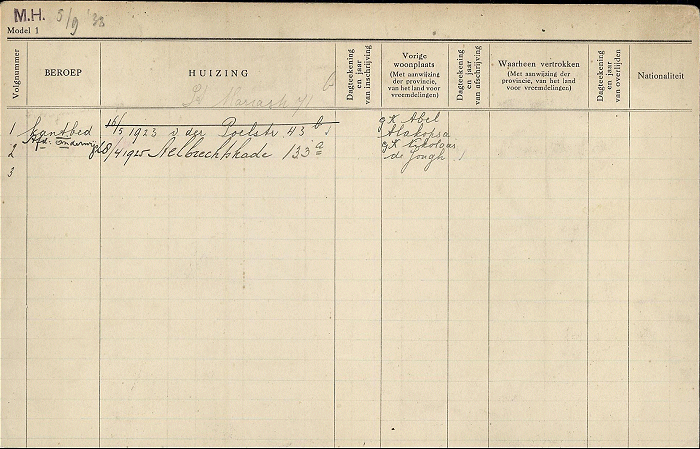 M.H. 5/9 '33
Model 1
Volgnummer
BEROEP
HUIZING
Dagteekening en jaar van inschrijving
Vorige woonplaats
(Met aanwijzing der provincie, van het land voor vreemdelingen)
Dagteekening en jaar van afschrijving
Waarheen vertrokken
(Met aanwijzing der provincie, van het land voor vreemdelingen)
Dagteekening en jaar van overlijden
Nationaliteit
1 Kantbed 16/5 1923 v der Poelstr 43 b gK Abel
Afd. onderwijs
2 8/4 1925 Aelbrechtskade 133 a gK Nikolaas
de Jongh
3